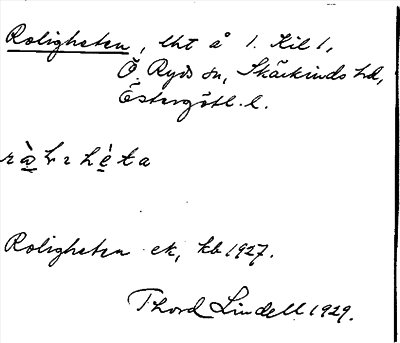 Roligheten, lht å 1. Kil 1,
Ö. Ryds sn, Skärkinds hd,
Östergötl. l.
Roligheten ek, kb 1927.
Thord Lindell 1929.